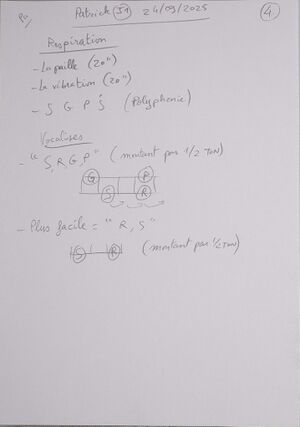 Patrick (51) 24/09/2025
4
Respiration
- La paille (20")
- La vibration (20")
- S G P Ṡ (Polyphonie)
Vocalises
- "S, R, G, P" (montant par 1/2 TON)
G P
S R
- Plus facile = "R, S"
S R (montant par 1/2 TON)